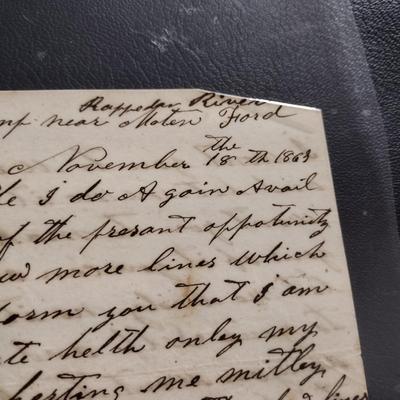 Rappedan River
mp near Moten Ford
November the 18 th 1863
le I do Again Avail
of the presant oppotunity
ew more lines which
form you that I am
te helth onley my
herting me mitley